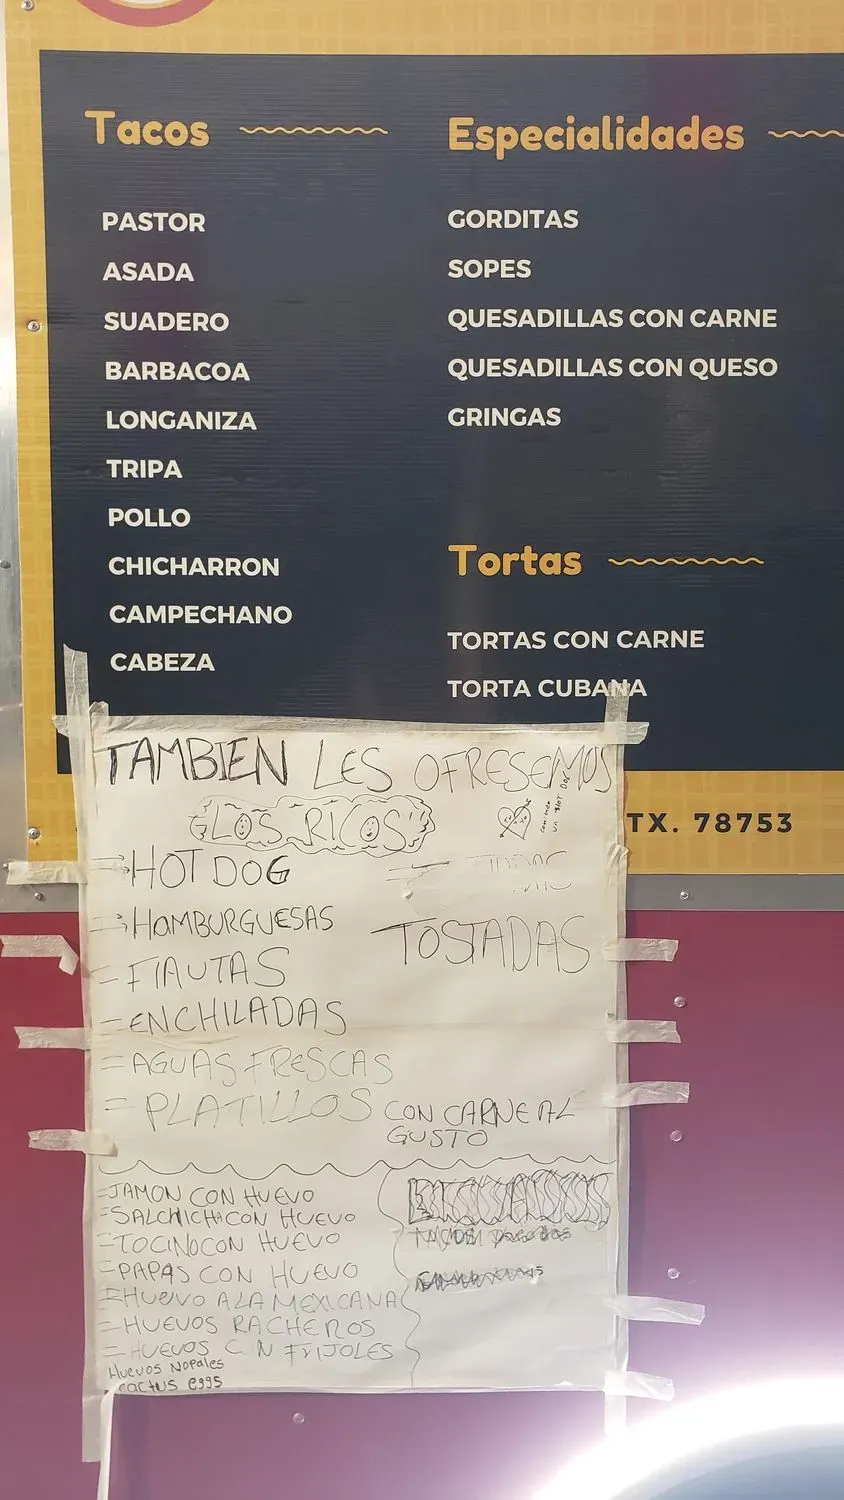 Tacos
PASTOR
ASADA
SUADERO
BARBACOA
LONGANIZA
TRIPA
POLLO
CHICHARRON
CAMPECHANO
CABEZA
Especialidades
GORDITAS
SOPES
QUESADILLAS CON CARNE
QUESADILLAS CON QUESO
GRINGAS
Tortas
TORTAS CON CARNE
TORTA CUBANA
TX. 78753
TAMBIEN LES OFRESEMOS
LOS RICOS
HOT DOG
HAMBURGUESAS
FlAUTAS
ENCHILADAS
AGUAS FRESCAS
PLATILLOS CON CARNE AL
GUSTO
TOSTADAS
JAMON CON HUEVO
SALCHICHA CON HUEVO
TOCINO CON HUEVO
PAPAS CON HUEVO
HUEVO A LA MEXICANA
HUEVOS RACHEROS
HUEVOS C N FRIJOLES
Huevos Nopales
cactus eggs